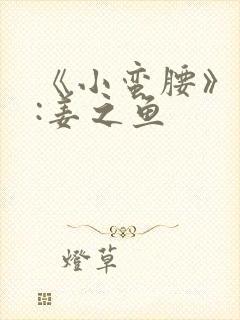 《小蛮腰》
:姜之鱼
燈草